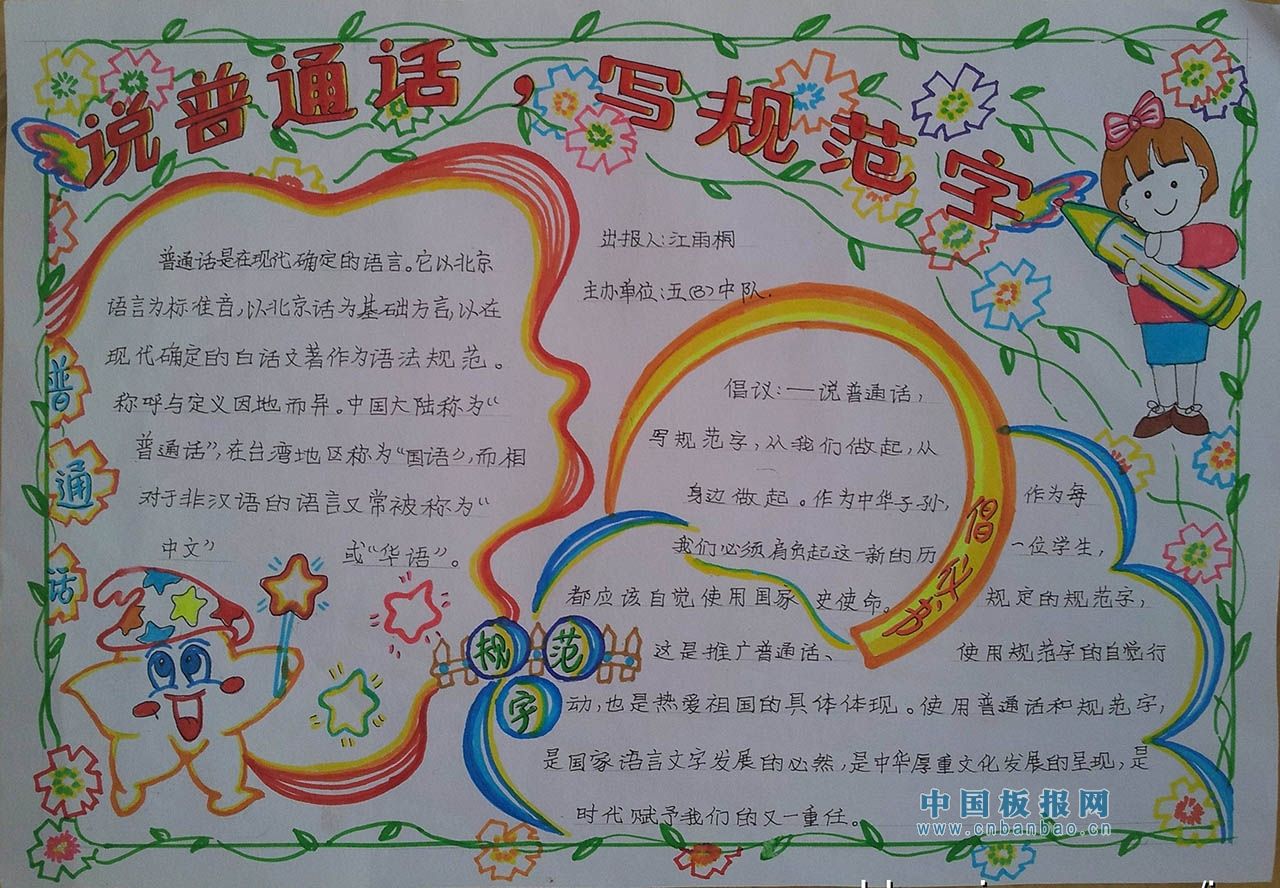 说普通话，写规范字
出报人:江雨桐
主办单位:五(3)中队.
普通话是在现代确定的语言。它以北京
语言为标准音,以北京话为基础方言,以在
现代确定的白话文著作为语法规范。
称呼与定义因地而异。中国大陆称为“
普通话”,在台湾地区称为“国语”,而相
对于非汉语的语言又常被称为“
中文” 或“华语”。
普
通
话
规范
字
倡议书
倡议:——说普通话,
写规范字,从我们做起,从
身边做起。作为中华子孙, 作为每
我们必须肩负起这一新的历 一位学生,
都应该自觉使用国家 史使命。 规定的规范字,
这是推广普通话、 使用规范字的自觉行
动,也是热爱祖国的具体体现。使用普通话和规范字,
是国家语言文字发展的必然,是中华厚重文化发展的呈现,是
时代赋予我们的又一重任。
中国板报网
www.cnbanbao.cn